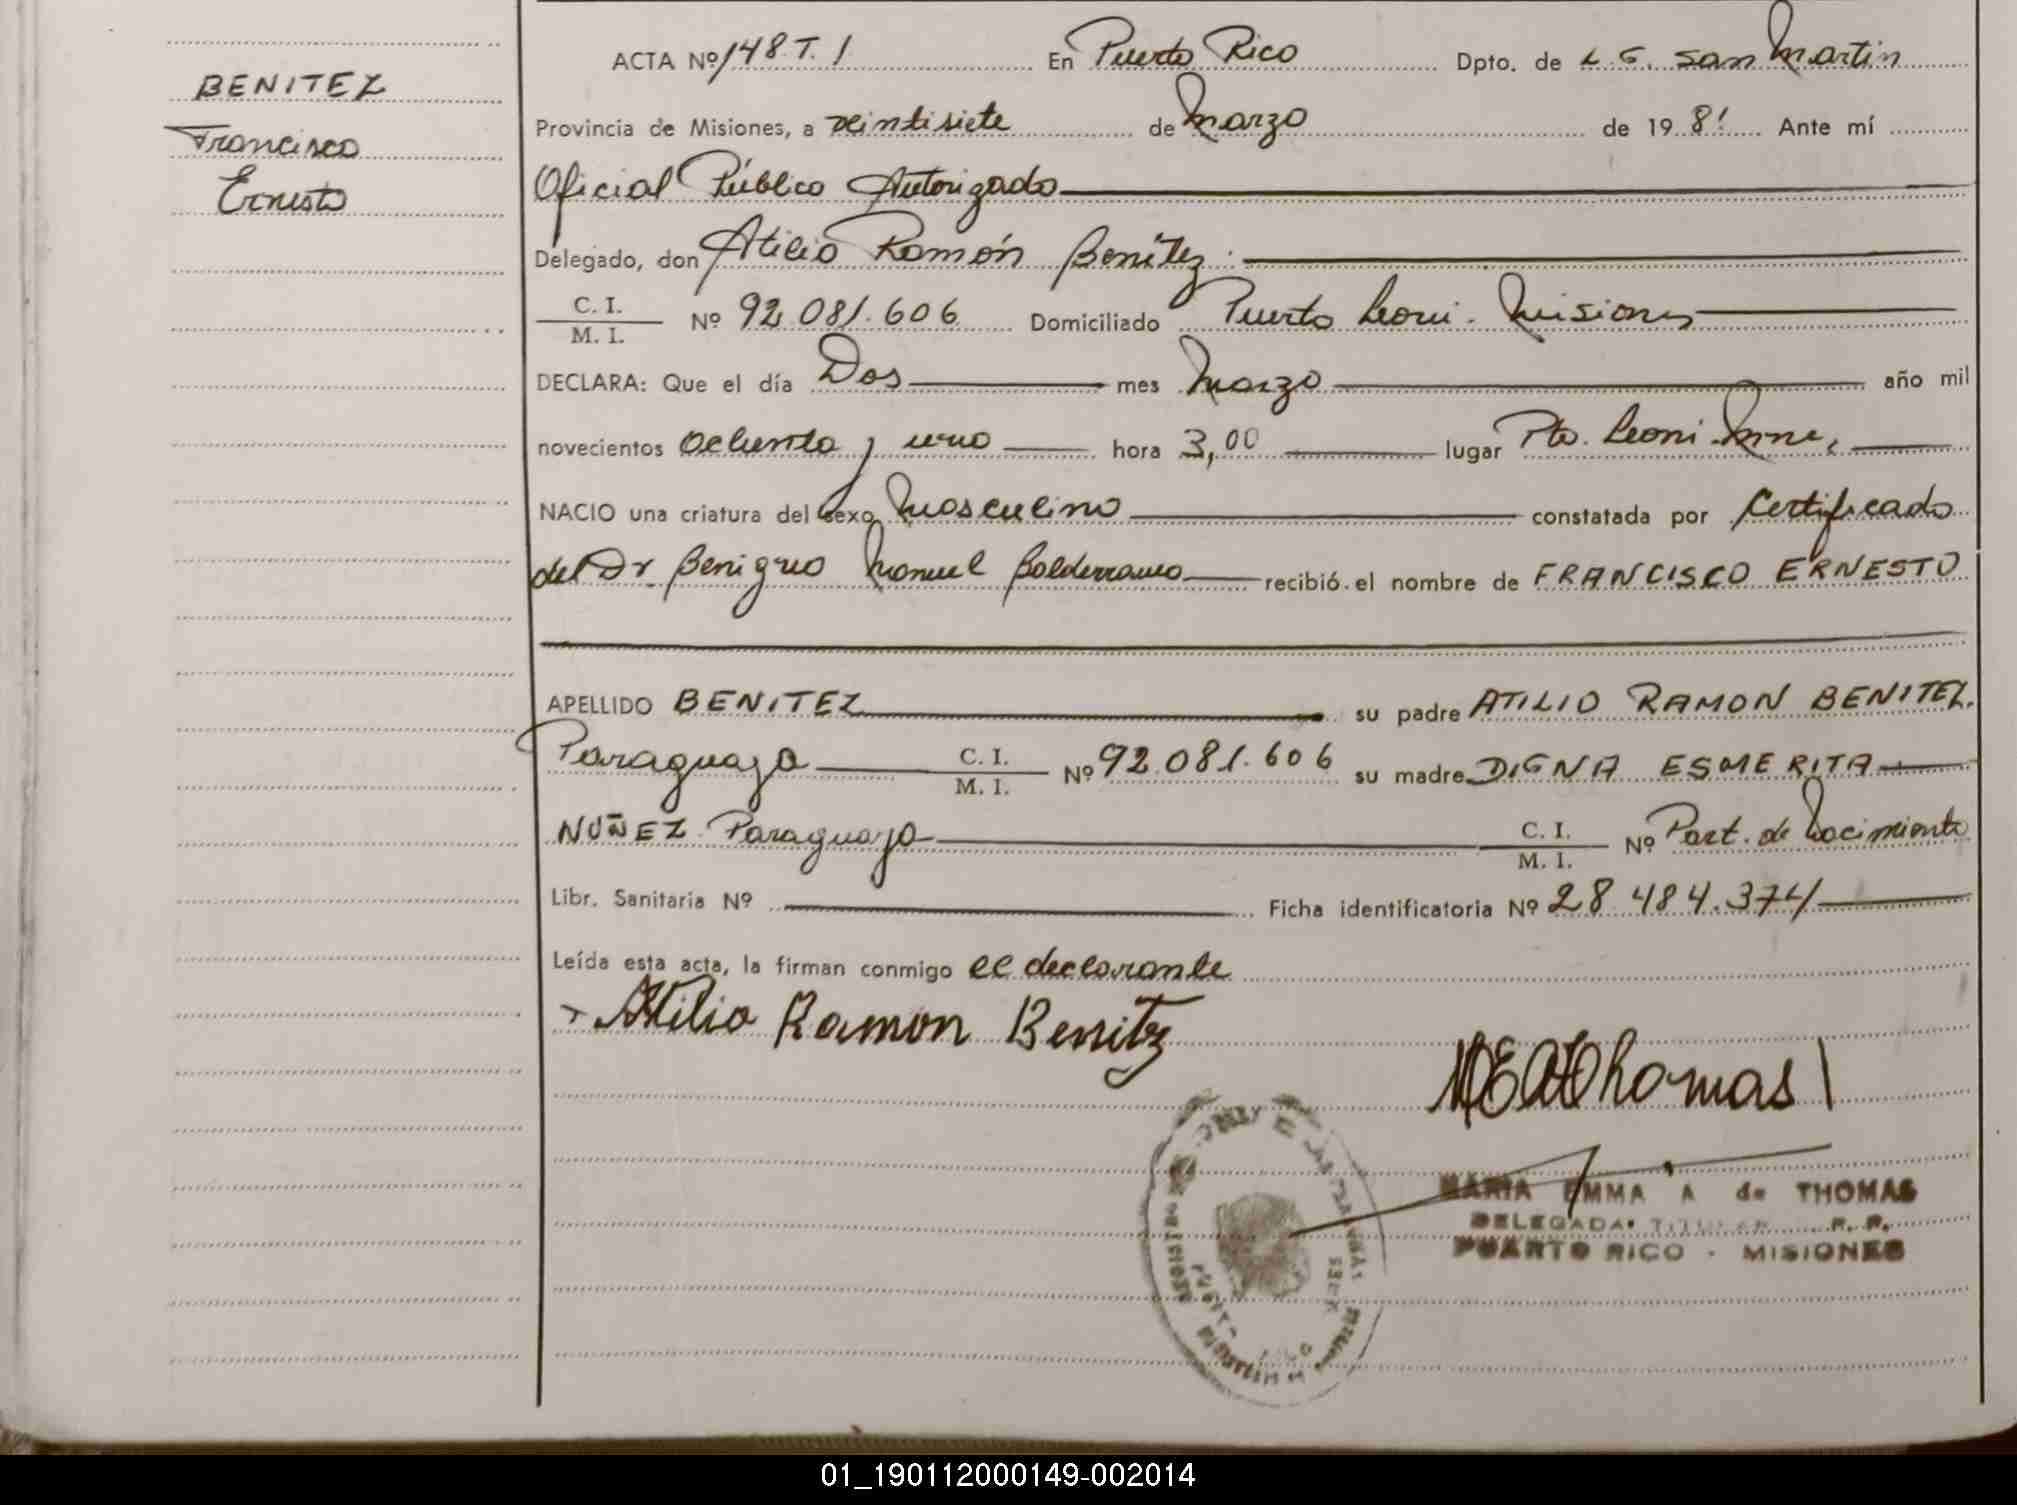 BENITEZ
Francisco
Ernesto
ACTA Nº 148 T. 1 En Puerto Rico Dpto. de L. G. San Martín
Provincia de Misiones, a veintisiete de Marzo de 1981 Ante mí
Oficial Público Autorizado
Delegado, don Atilio Ramón Benítez
C. I.
M. I. Nº 92.081.606 Domiciliado Puerto Leoni. Misiones
DECLARA: Que el día Dos mes Marzo año mil
novecientos ochenta y uno hora 3,00 lugar Pto. Leoni Mnes.
NACIO una criatura del sexo Masculino constatada por Certificado
del Dr Benigno Manuel Balderrama recibió el nombre de FRANCISCO ERNESTO
APELLIDO BENITEZ su padre ATILIO RAMON BENITEZ.
Paraguaya C. I.
M. I. Nº 92.081.606 su madre DIGNA ESMERITA
NUÑEZ Paraguaya C. I.
M. I. Nº Part. de Nacimiento
Libr. Sanitaria Nº Ficha identificatoria Nº 28.484.374
Leída esta acta, la firman conmigo el declarante
Atilio Ramon Benitz
MEA Thomas
MARIA EMMA A de THOMAS
DELEGADA TITULAR R. P.
PUERTO RICO - MISIONES
01_190112000149-002014